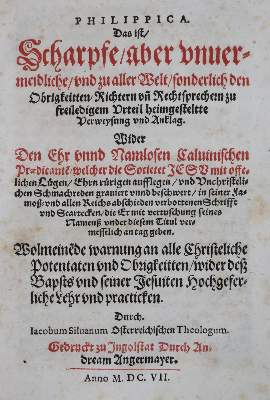 PHILIPPICA.
Das ist/
Scharpfe/ aber vnuer-
meidliche/ vnd zu aller Welt/ sonderlich den
Obrigkeitten/ Richtern vñ Rechtsprechern zu
freiledigem Vrteil heimgestellte
Verweysung vnd Anklag.
Wider
Den Ehr vnnd Namlosen Caluinischen
Prædicantē/ welcher die Societet JESV mit offe-
lichen Lügen/ Ehrn rürigen aufflegen/ vnd Vnchristli-
chen Schmachreden grauiert vnnd beschwert/ in seiner Fa-
moß/ vnd allen Reichs abschieden verbottenen Schrifft
vnd Scartecken/ die Er mit vertuschung seines
Namens vnder diesem Titul ver-
messelich an tag geben.
Wolmeinēde warnung an alle Christeliche
Potentaten vnd Obrigkeitten/ wider deß
Bapsts vnd seiner Jesuiten Hochgefer-
liche Lehr vnd practicken.
Durch.
Iacobum Siluanum Osterreichischen Theologum.
Gedruckt zu Ingolstat Durch An-
dream Angermayer.
Anno M. DC. VII.